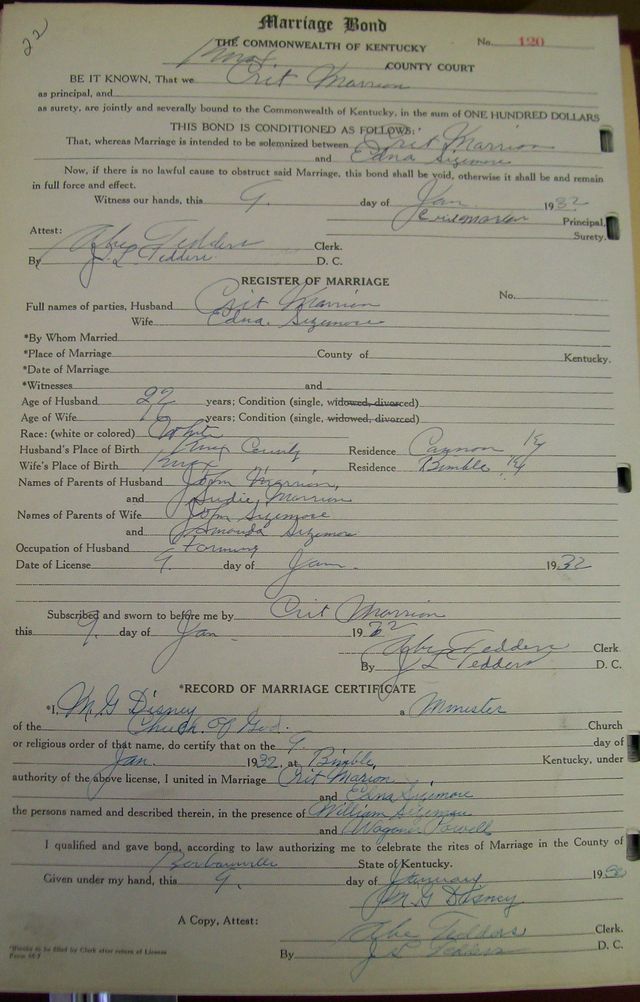 22
Marriage Bond
THE COMMONWEALTH OF KENTUCKY No. 120
Knox COUNTY COURT
BE IT KNOWN, That we Crit Marrion
as principal, and
as surety, are jointly and severally bound to the Commonwealth of Kentucky, in the sum of ONE HUNDRED DOLLARS
THIS BOND IS CONDITIONED AS FOLLOWS:
That, whereas Marriage is intended to be solemnized between Crit Marrion
and Edna Sizemore
Now, if there is no lawful cause to obstruct said Marriage, this bond shall be void, otherwise it shall be and remain
in full force and effect.
Witness our hands, this 9. day of Jan 1932
Principal,
Surety.
Attest: Abe Tedders Clerk.
By J. L. Tedders D. C.
REGISTER OF MARRIAGE
Full names of parties, Husband Crit Marrion No.
Wife Edna Sizemore
*By Whom Married
*Place of Marriage County of Kentucky.
*Date of Marriage
*Witnesses and
Age of Husband 22 years; Condition (single, widowed, divorced)
Age of Wife 16 years; Condition (single, widowed, divorced)
Race: (white or colored) White
Husband's Place of Birth Knox County Residence Cannon Ky
Wife's Place of Birth Knox Residence Bimble, Ky
Names of Parents of Husband John Marrion,
and Sudie, Marrion
Names of Parents of Wife John Sizemore
and Amanda Sizemore
Occupation of Husband Farming
Date of License 9. day of Jan. 1932
Subscribed and sworn to before me by Crit Marrion
this 9. day of Jan 1932
Abe Tedders Clerk
By J L Tedders D. C.
*RECORD OF MARRIAGE CERTIFICATE
*I, M. G Disney a Minester
of the Church Of God. Church
or religious order of that name, do certify that on the 9. day of
Jan. 1932, at Bimble, Kentucky, under
authority of the above license, I united in Marriage Crit Marion
and Edna Sizemore
the persons named and described therein, in the presence of William Sizemore
and Wagoner Powell
I qualified and gave bond, according to law authorizing me to celebrate the rites of Marriage in the County of
Berbourville State of Kentucky.
Given under my hand, this 9. day of January 19
M G Disney
A Copy, Attest: Abe Tedders Clerk.
By J L Tedders D. C.
*Blanks to be filled by Clerk after return of License